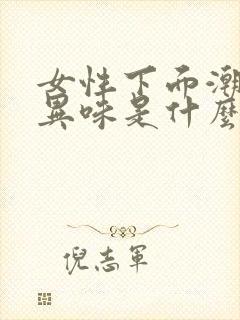 女性下而潮
異味是什麼
倪志軍